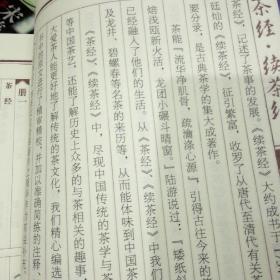 茶经·续茶经
茶经》,记述了茶事的发展。《续茶经》大约成书于
廷灿的《续茶经》,征引繁富,收罗了从唐代至清代有关茶
要分录,是古典茶学的集大成著作。
茶能『流华净肌骨,疏瀹涤心源』,引得古往今来的
焙浅瓯新火活,龙团小碾斗晴窗。』陆游说过:『矮纸斜
已经融入了他们的生活。从《茶经》、《续茶经》中我们
及龙井、碧螺春等名茶的来历等,从而能体味到中国茶
《茶经》、《续茶经》中,尽现中国传统的茶学与茶
等中国茶艺,还能了解历史上众多的与茶相关的趣事
大爱茶人能更好地了解传统的茶文化,我们精心编选
茶经
册一